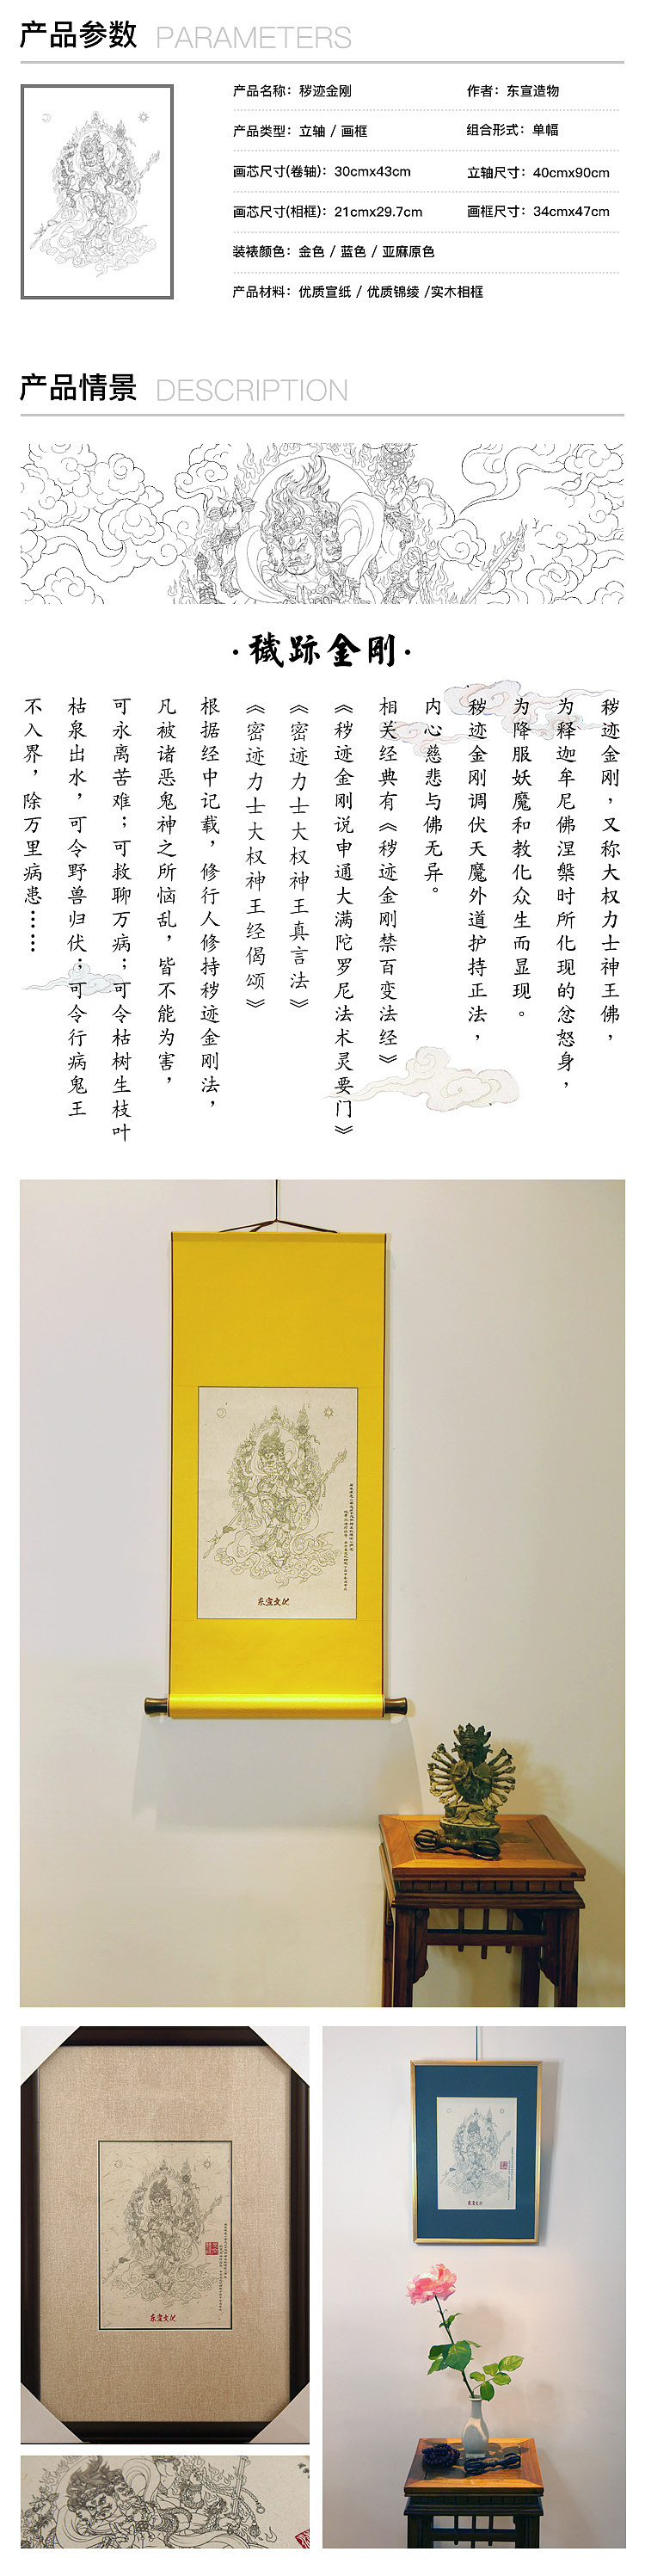 产品参数 PARAMETERS
产品名称：秽迹金刚
作者：东宣造物
产品类型：立轴 / 画框
组合形式：单幅
画芯尺寸(卷轴)：30cmx43cm
立轴尺寸：40cmx90cm
画芯尺寸(相框)：21cmx29.7cm
画框尺寸：34cmx47cm
装裱颜色：金色 / 蓝色 / 亚麻原色
产品材料：优质宣纸 / 优质锦绫 /实木相框
产品情景 DESCRIPTION
·穢跡金剛·
秽迹金刚，又称大权力士神王佛，
为释迦牟尼佛涅槃时所化现的忿怒身，
为降服妖魔和教化众生而显现。
秽迹金刚调伏天魔外道护持正法，
内心慈悲与佛无异。
相关经典有《秽迹金刚禁百变法经》
《秽迹金刚说申通大满陀罗尼法术灵要门》
《密迹力士大权神王真言法》
《密迹力士大权神王经偈颂》
根据经中记载，修行人修持秽迹金刚法，
凡被诸恶鬼神之所恼乱，皆不能为害，
可永离苦难；可救聊万病；可令枯树生枝叶
枯泉出水，可令野兽归伏；可令行病鬼王
不入界，除万里病患……
东宣文化
东宣文化
东宣文化